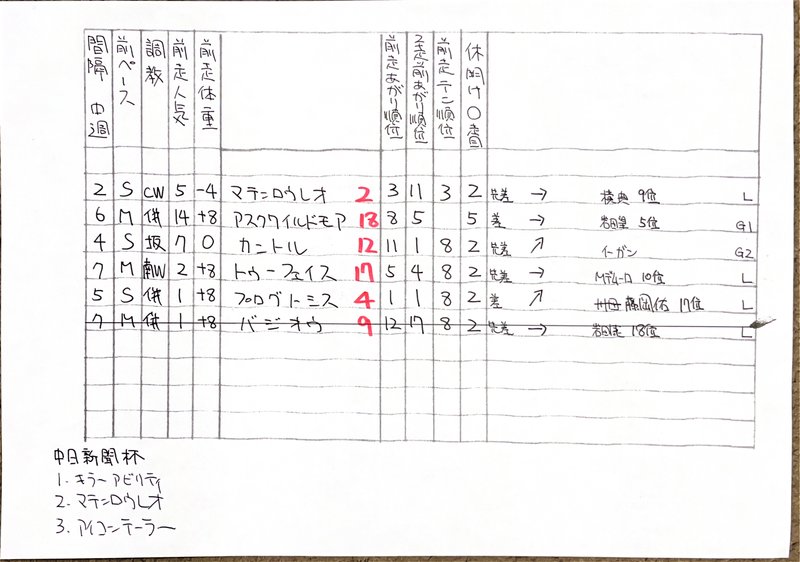 間隔 中週 前ペース 調教 前走人気 前走体重 前走あがり順位 2走前あがり順位 前走テン順位 休明け〇番
2 S CW 5 -4 マテンロウレオ 2 3 11 3 2 先差 → 横典 9位 L
6 M 併 14 +8 アスクワイルドモア 18 8 5 5 差 → 岩田望 5位 G1
4 S 坂 7 0 カントル 12 11 1 8 2 先差 ↗ イーガン G2
7 M 南W 2 +8 トゥーフェイス 17 5 4 8 2 先差 → Mデムーロ 10位 L
5 S 併 1 +8 プログノーシス 4 1 1 8 2 差 ↗ 藤岡佑 17位 L
7 M 併 1 +8 バジオウ 9 12 17 8 2 先差 → 18位 L
中日新聞杯
1. キラーアビリティ
2. マテンロウレオ
3. アイコンテーラー